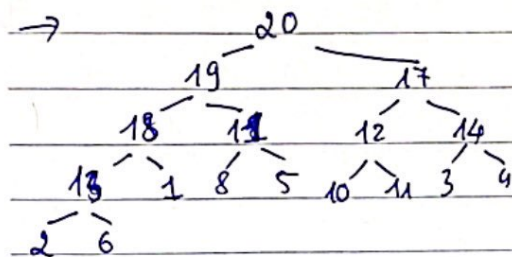 → 20
19 17
18 12 14
1 8 5 10 11 3 4
2 6